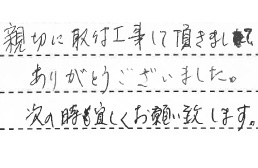 親切に取付工事して頂きまして
ありがとうございました。
次の時も宜しくお願い致します。